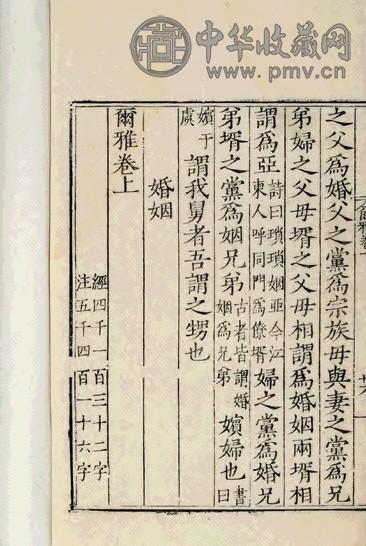 中华收藏网
www.pmv.cn
之父為婚父之黨為宗族母與妻之黨為兄
弟婦之父母壻之父母相謂為婚姻兩壻相
謂為亞詩曰瑣瑣姻亞今江東人呼同門為僚壻婦之黨為婚兄
弟壻之黨為姻兄弟古者皆謂婚姻為兄弟嬪婦也書曰
嬪于虞謂我舅者吾謂之甥也
婚姻
爾雅卷上
經四千一百三十二字
注五千四百一十六字